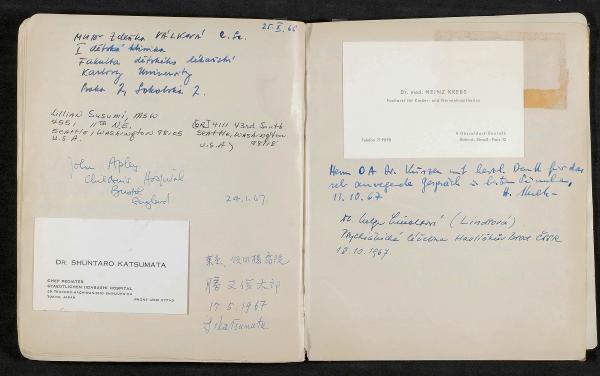 25. X. 66
MUDr Zdeňka VÁLKOVÁ C. Sc.
I dětská klinika
Fakulta dětského lékařství
Karlovy University
Praha 2, Sokolská 2.
Lillian Susumi, MSW
4551 11th N.E.
Seattle, Washington 98105
U.S.A.
(OR) 4111 43rd South
Seattle, Washington
U.S.A) 98118
John Apley
Children's Hospital
Bristol
England
24.1.67.
DR. SHUNTARO KATSUMATA
CHEF PEDIATER
STAEDTLICHEN IIDABASHI HOSPITAL
TOKYO, JAPAN
東京
勝又俊太郎
17. 5. 1967
S. Katsumata
Dr. med. HEINZ KREBS
Facharzt für Kinder- und Nervenkrankheiten
Telefon
Herrn OA Dr. mit herzl. Dank für das
sehr anregende Gespräch in
13.10.67
Dr. (Lindtová)
Psychiatrická léčebna Havlíčkův Brod ČSSR
18.10.1967.